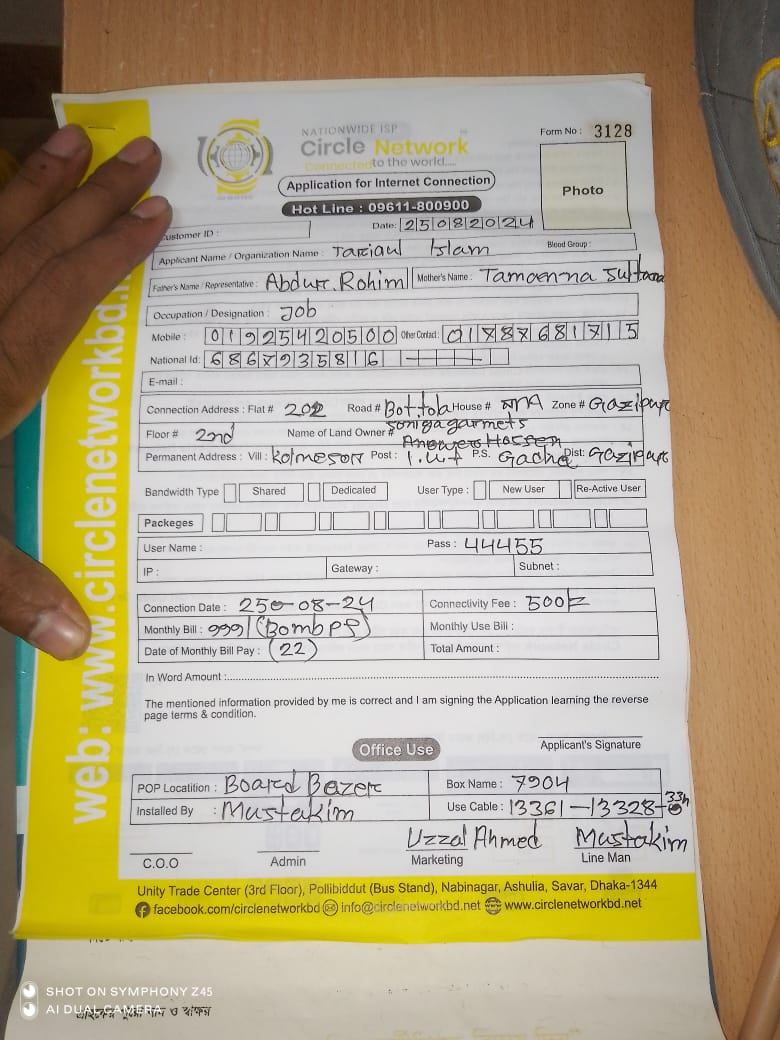 NATIONWIDE ISP
Circle Network
Connected to the world....
Form No : 3128
Application for Internet Connection
Photo
Hot Line : 09611-800900
Date: 25082024
Customer ID :
Applicant Name / Organization Name : Tariqul Islam Blood Group :
Father's Name / Representative : Abdur. Rohim Mother's Name : Tamanna Sultana
Occupation / Designation : Job
Mobile : 01925420500 Other Contact : 01787681715
National Id: 6867935816
E-mail :
Connection Address : Flat # 202 Road # Bottola House # Zone # Gazipur
soniyagarmets
Floor # 2nd Name of Land Owner # Anower Hossen
Permanent Address : Vill : Kolmeson Post : I.U.T P.S. Gacha Dist: Gazipur
Bandwidth Type Shared Dedicated User Type : New User Re-Active User
Packeges
User Name : Pass : 44455
IP : Gateway : Subnet :
Connection Date : 25-08-24 Connectivity Fee : 500/=
Monthly Bill : 999/ (30mbps) Monthly Use Bill :
Date of Monthly Bill Pay : (22) Total Amount :
In Word Amount :
The mentioned information provided by me is correct and I am signing the Application learning the reverse
page terms & condition.
Office Use
Applicant's Signature
POP Locatition : Board Bazer Box Name : 7904
Installed By : Mustakim Use Cable : 13361-13328- 33h
Uzzal Ahmed Mustakim
C.O.O Admin Marketing Line Man
Unity Trade Center (3rd Floor), Pollibiddut (Bus Stand), Nabinagar, Ashulia, Savar, Dhaka-1344
facebook.com/circlenetworkbd info@circlenetworkbd.net www.circlenetworkbd.net
web: www.circlenetworkbd.n
SHOT ON SYMPHONY Z45
AI DUAL CAMERA